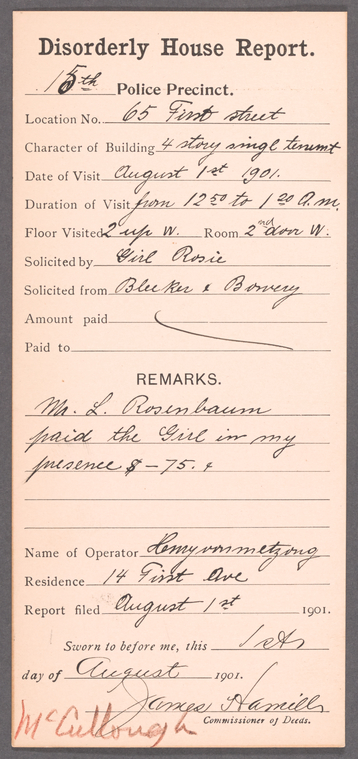 Disorderly House Report.
15th Police Precinct.
Location No. 65 First street
Character of Building 4 story singl tenemt
Date of Visit August 1st 1901.
Duration of Visit from 12 50 to 1 20 A.m.
Floor Visited 2 up W. Room 2nd door W.
Solicited by Girl Rosie
Solicited from Bleeker & Bowery
Amount paid
Paid to
REMARKS.
Mr. L. Rosenbaum
paid the Girl in my
presence $ - 75. ¢
Name of Operator
Residence 14 First Ave
Report filed August 1st 1901.
Sworn to before me, this 1st
day of August 1901.
James Hamill
Commissioner of Deeds.
McCullough